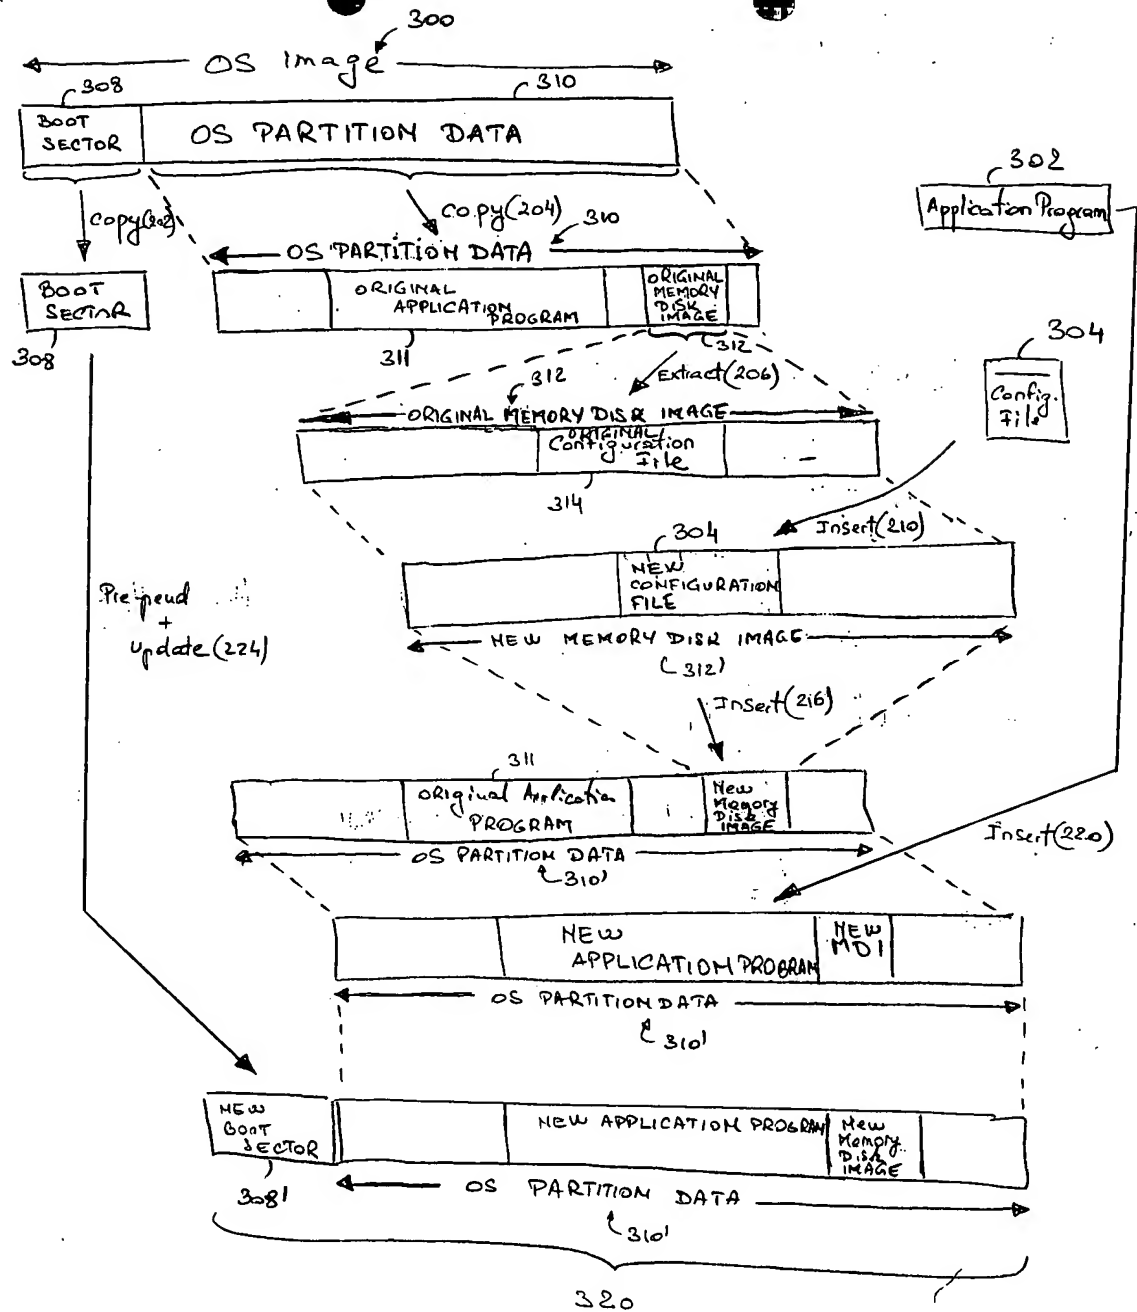 300
OS Image
308
310
BOOT
SECTOR
OS PARTITION DATA
302
Application Program
Copy(202)
Copy(204)
310
OS PARTITION DATA
BOOT
SECTOR
ORIGINAL
APPLICATION
PROGRAM
ORIGINAL
MEMORY
DISK
IMAGE
308
311
312
304
312
Extract(206)
Config.
File
ORIGINAL MEMORY DISK IMAGE
ORIGINAL
Configuration
File
314
Insert(210)
304
NEW
CONFIGURATION
FILE
Pre-pend
+
update(224)
NEW MEMORY DISK IMAGE
312'
Insert(216)
311
ORiginal Application
PROGRAM
New
Memory
Disk
IMAGE
Insert(220)
OS PARTITION DATA
310'
NEW
APPLICATION PROGRAM
NEW
MDI
OS PARTITION DATA
310'
NEW
BOOT
SECTOR
NEW APPLICATION PROGRAM
New
Memory
Disk
IMAGE
308'
OS PARTITION DATA
310'
320